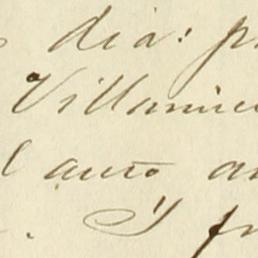 dia: p
Villami
l auto a
. Y fr